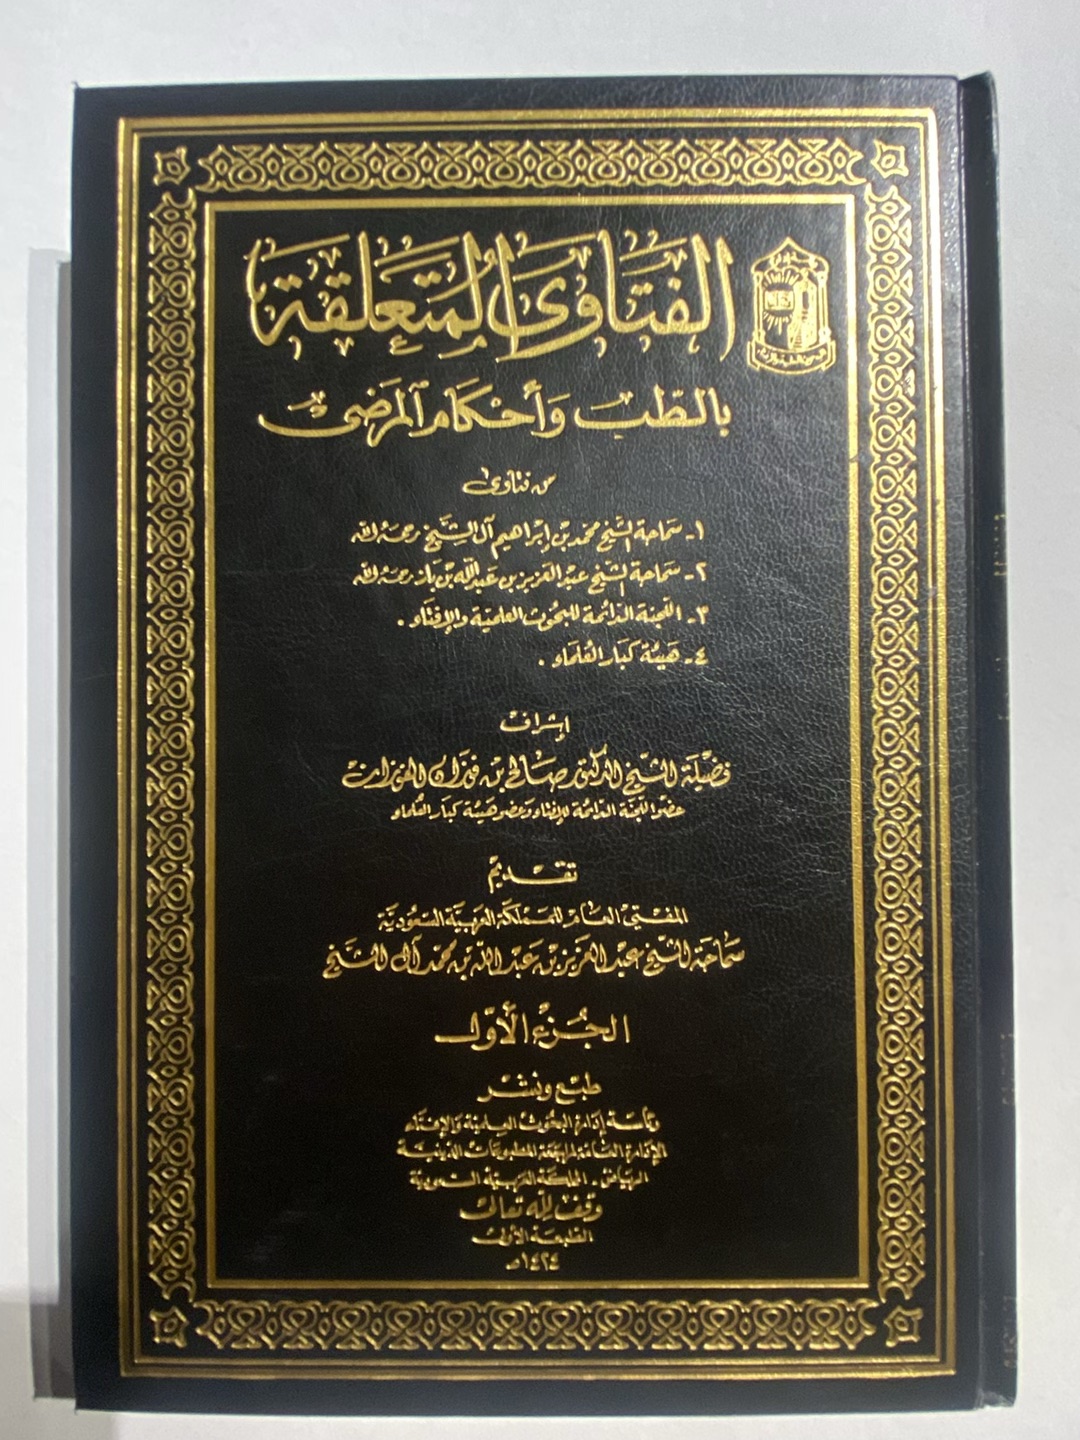 الفتاوى المتعلقة
بالطب وأحكام المرضى
من فتاوى
١- سماحة الشيخ محمد بن إبراهيم آل الشيخ رحمه الله
٢- سماحة الشيخ عبد العزيز بن عبد الله بن باز رحمه الله
٣- اللجنة الدائمة للبحوث العلمية والإفتاء .
٤- هيئة كبار العلماء .
إشراف
فضيلة الشيخ الدكتور صالح بن فوزان الفوزان
عضو اللجنة الدائمة للإفتاء وعضو هيئة كبار العلماء
تقديم
المفتي العام للمملكة العربية السعودية
سماحة الشيخ عبد العزيز بن عبد الله بن محمد آل الشيخ
الجزء الأول
طبع ونشر
رئاسة إدارة البحوث العلمية والإفتاء
الإدارة العامة لمراجعة المطبوعات الدينية
الرياض - المملكة العربية السعودية
وقف لله تعالى
الطبعة الأولى
١٤٢٤هـ